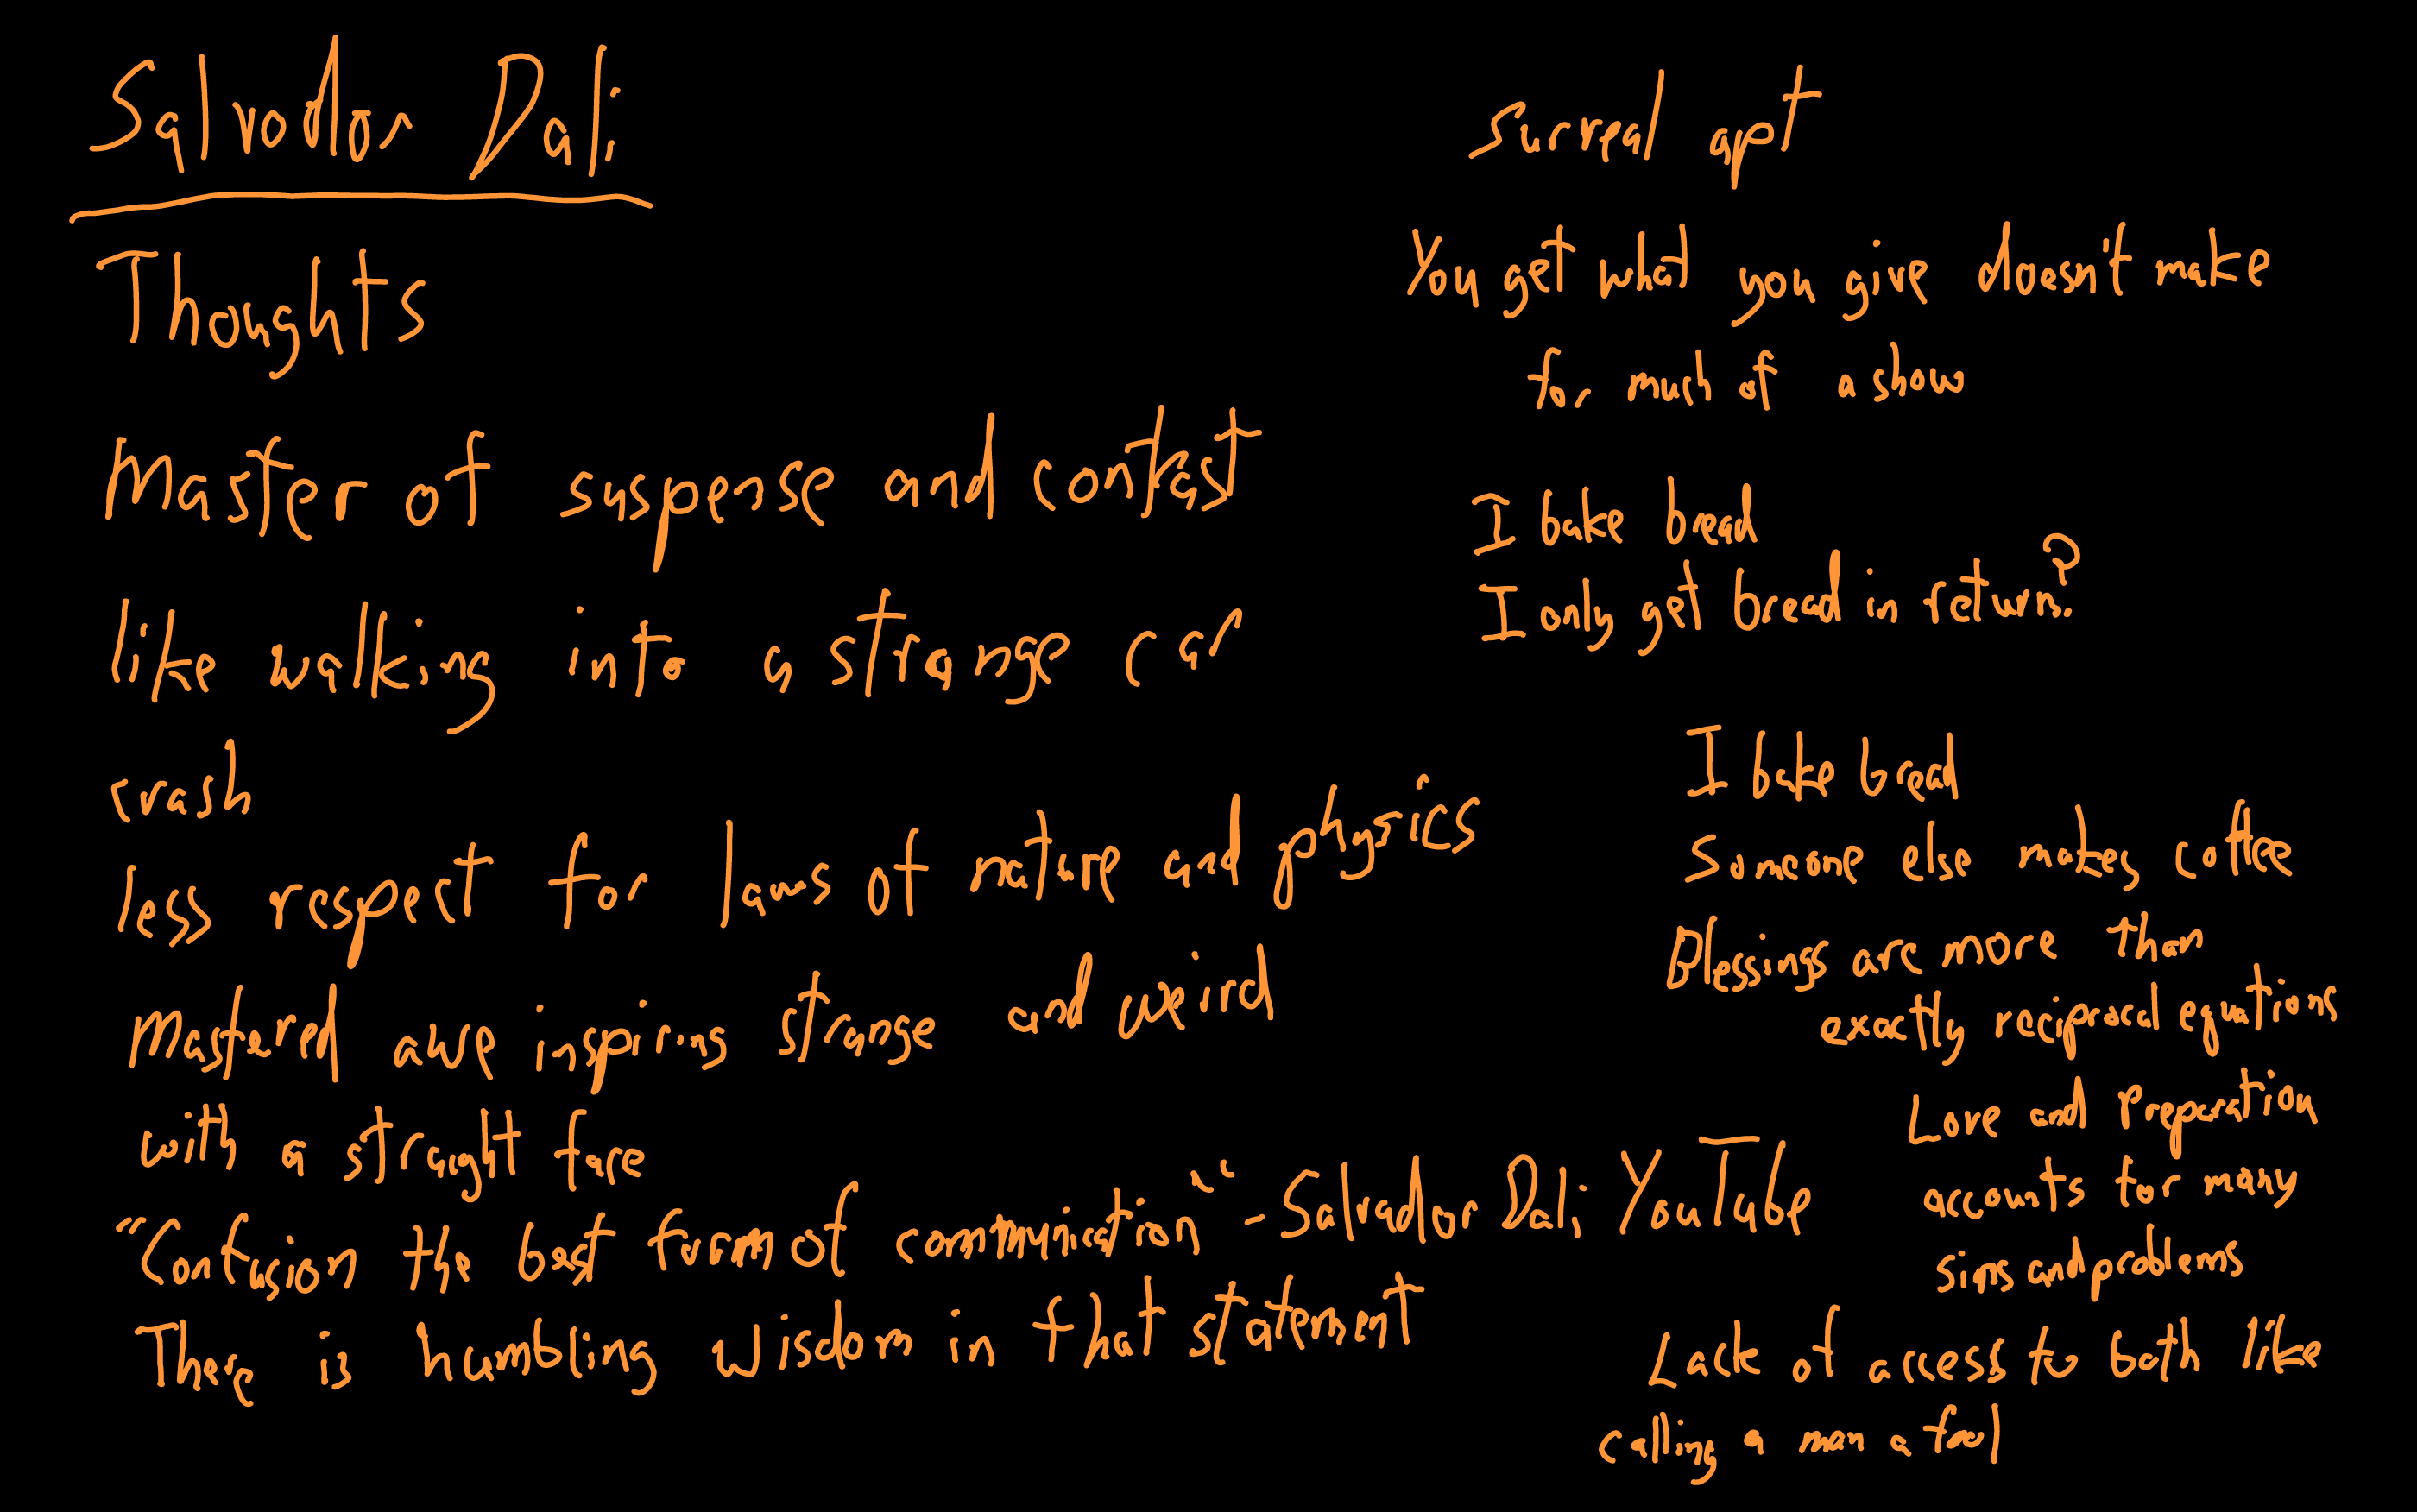 Salvador Dali
Thoughts
Master of suspense and contrast
like walking into a strange car
crash
less respect for laws of nature and physics
Mastered awe inspiring strange and weird
with a straight face
"Confusion the best form of communication" - Salvador Dali YouTube
There is humbling wisdom in that statement
Surreal apt
You get what you give doesn't make
for much of a show
I bake bread
I only get bread in return?
I bake bread
Someone else makes coffee
Blessings are more than
exactly reciprocal equations
Love and preparation
accounts for many
sins and problems
Lack of access to both like
calling a man a fool